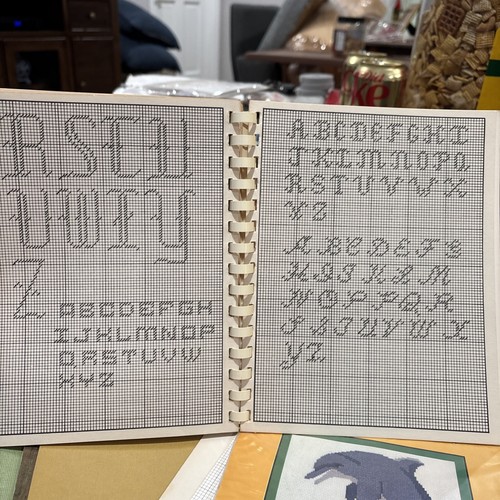 RSTU
VWXY
Z
ABCDEFGH
IJKLMNOP
QRSTUVW
XYZ
ABCDEFGHI
JKLMNOPQ
RSTUVWX
YZ
ABCDEFG
HIJKLM
NOPQR
STUVWX
YZ